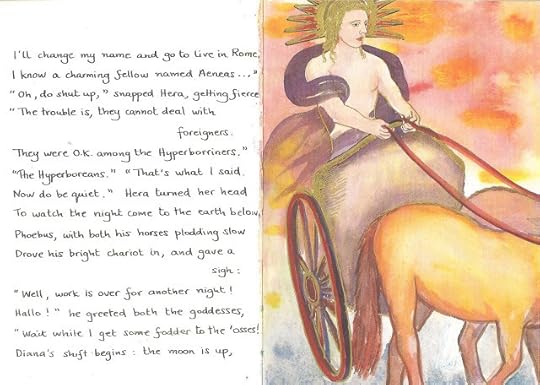 I'll change my name and go to live in Rome,
I know a charming fellow named Aeneas..."
"Oh, do shut up," snapped Hera, getting fierce
"The trouble is, they cannot deal with
foreigners.
They were O.K. among the Hyperborriners."
"The Hyperboreans." "That's what I said.
Now do be quiet." Hera turned her head
To watch the night come to the earth below,
Phoebus, with both his horses plodding slow
Drove his bright chariot in, and gave a
sigh:
"Well, work is over for another night!
Hallo!" he greeted both the goddesses,
"Wait while I get some fodder to the 'osses!
Diana's shift begins: the moon is up,